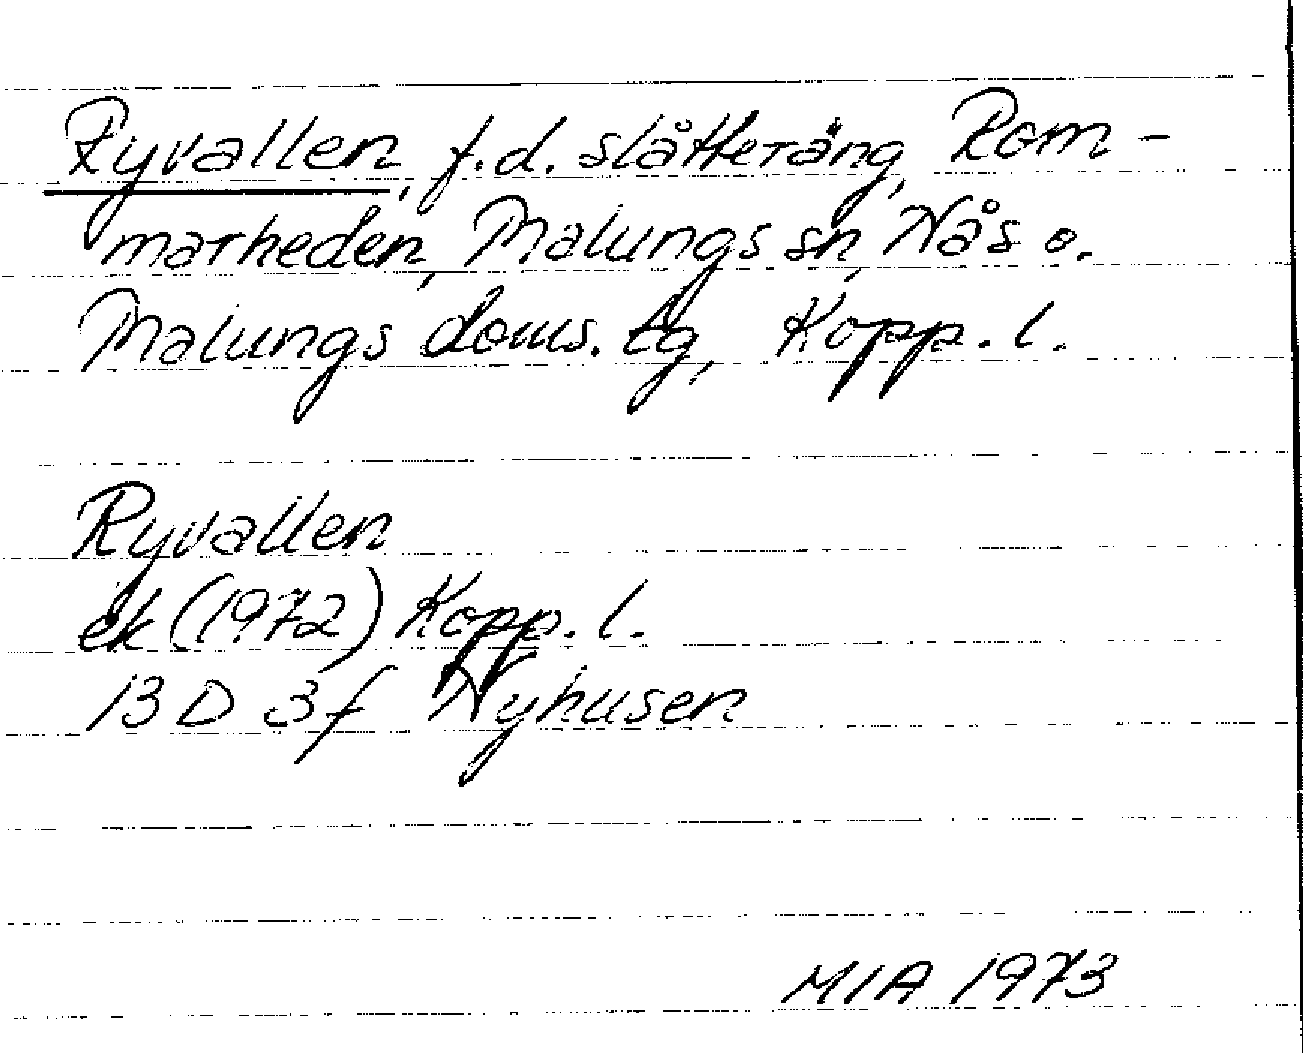 Ryvallen, f.d. slåtteräng, Rom-
marheden, Malungs sn, Nås o.
Malungs doms. tg, Kopp. l.
Ryvallen
ek (1972) Kopp. l.
13 D 3f Nyhusen
MIA 1973